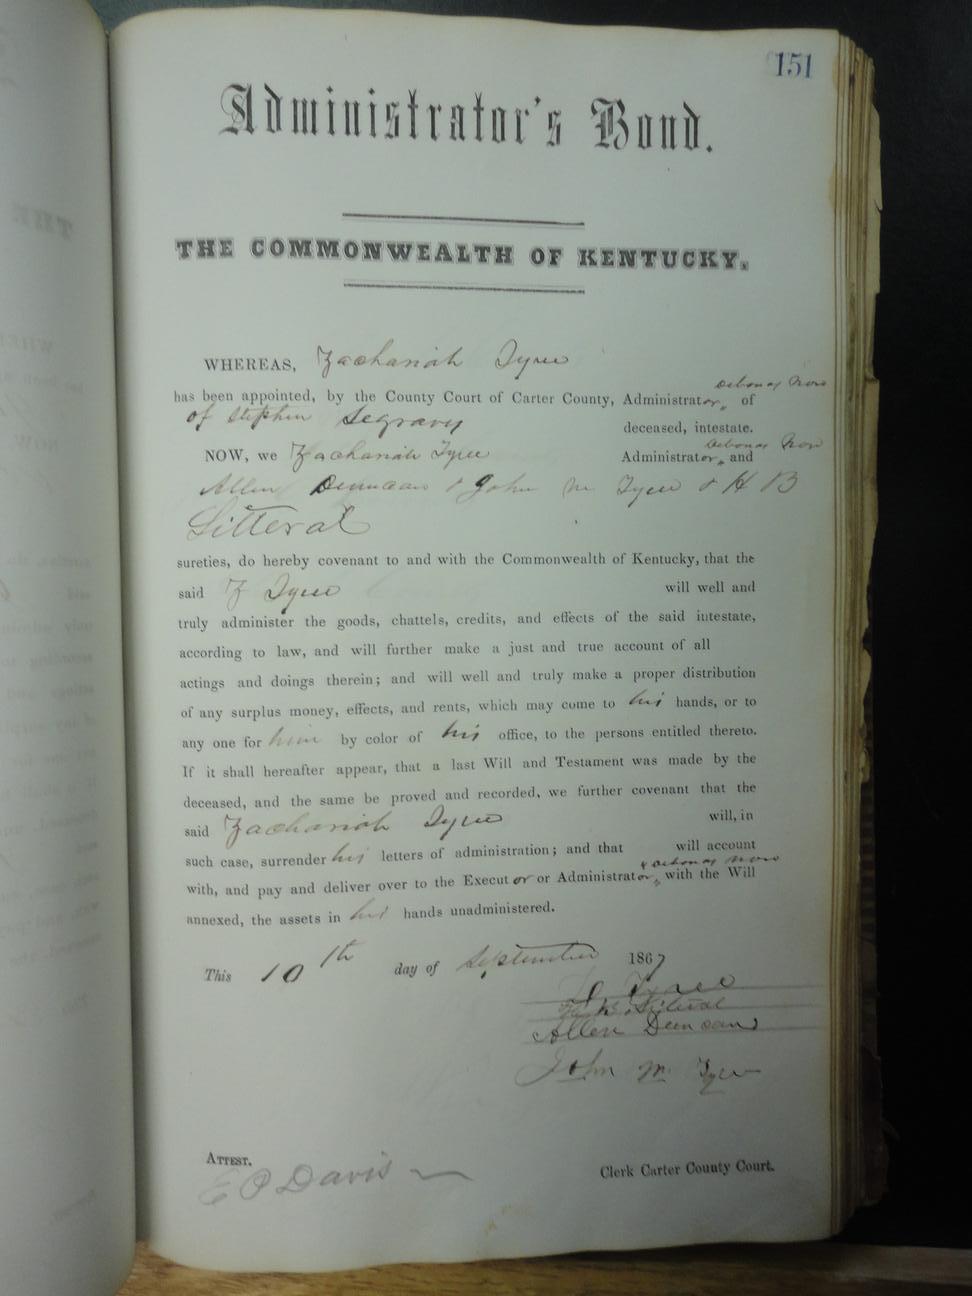 151
Administrator's Bond.
THE COMMONWEALTH OF KENTUCKY.
WHEREAS, Zachariah Tyree
debonas Non
has been appointed, by the County Court of Carter County, Administrator, of
of Stephen Segravy deceased, intestate.
debonas Non
NOW, we Zachariah Tyree Administrator, and
Allen Dunncan & John M Tyree & H B
Litteral
sureties, do hereby covenant to and with the Commonwealth of Kentucky, that the
said Z Tyree will well and
truly administer the goods, chattels, credits, and effects of the said intestate,
according to law, and will further make a just and true account of all
actings and doings therein; and will well and truly make a proper distribution
of any surplus money, effects, and rents, which may come to his hands, or to
any one for him by color of his office, to the persons entitled thereto.
If it shall hereafter appear, that a last Will and Testament was made by the
deceased, and the same be proved and recorded, we further covenant that the
said Zachariah Tyree will, in
such case, surrender his letters of administration; and that will account
debonas non
with, and pay and deliver over to the Executor or Administrator, with the Will
annexed, the assets in his hands unadministered.
This 10th day of September 1867
Tyree
Litteral
Allen Duncan
John M Tyree
ATTEST.
E P Davis Clerk Carter County Court.